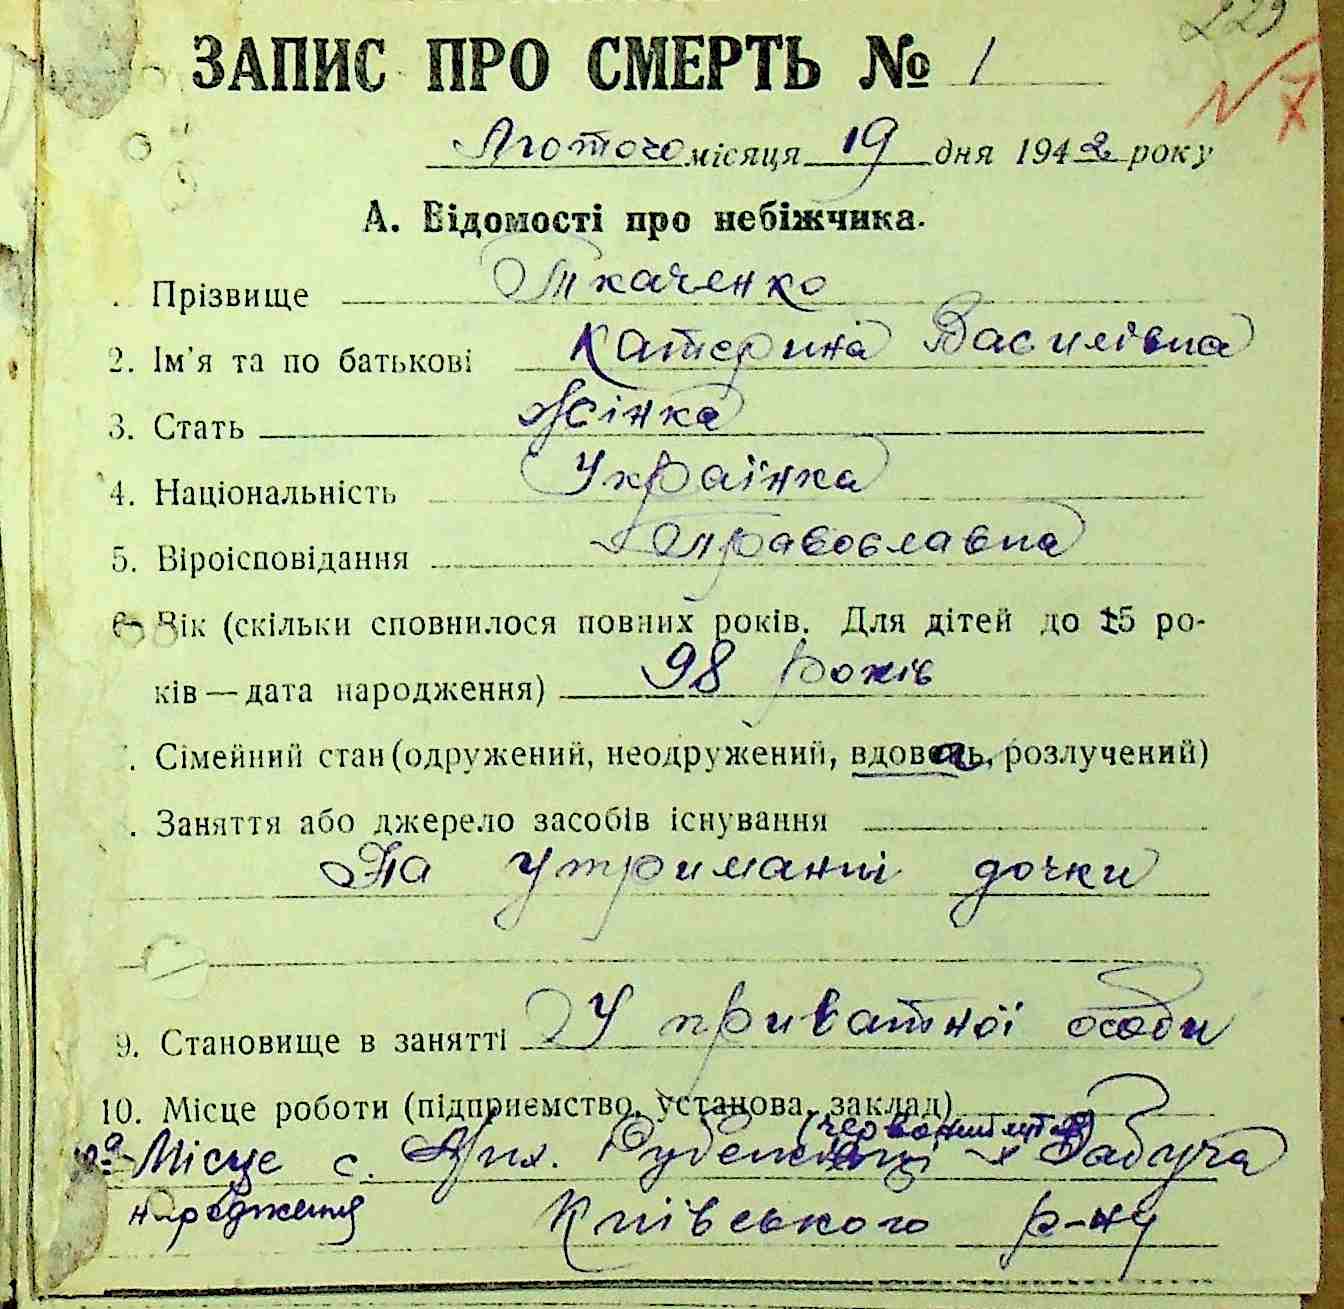 229
ЗАПИС ПРО СМЕРТЬ № 1
N 7
Лютого місяця 19 дня 1942 року
А. Відомості про небіжчика.
. Прізвище Ткаченко
2. Ім'я та по батькові Катерина Василівна
3. Стать Жінка
4. Національність Українка
5. Віроісповідання православна
6. Вік (скільки сповнилося повних років. Для дітей до 15 ро-
ків — дата народження) 98 років
. Сімейний стан (одружений, неодружений, вдова, розлучений)
. Заняття або джерело засобів існування
На утриманні дочки
9. Становище в занятті У приватної особи
10. Місце роботи (підприємство, установа, заклад)
10а Місце с. Мих. Рубежівці Забуча
народження Київського р-ну